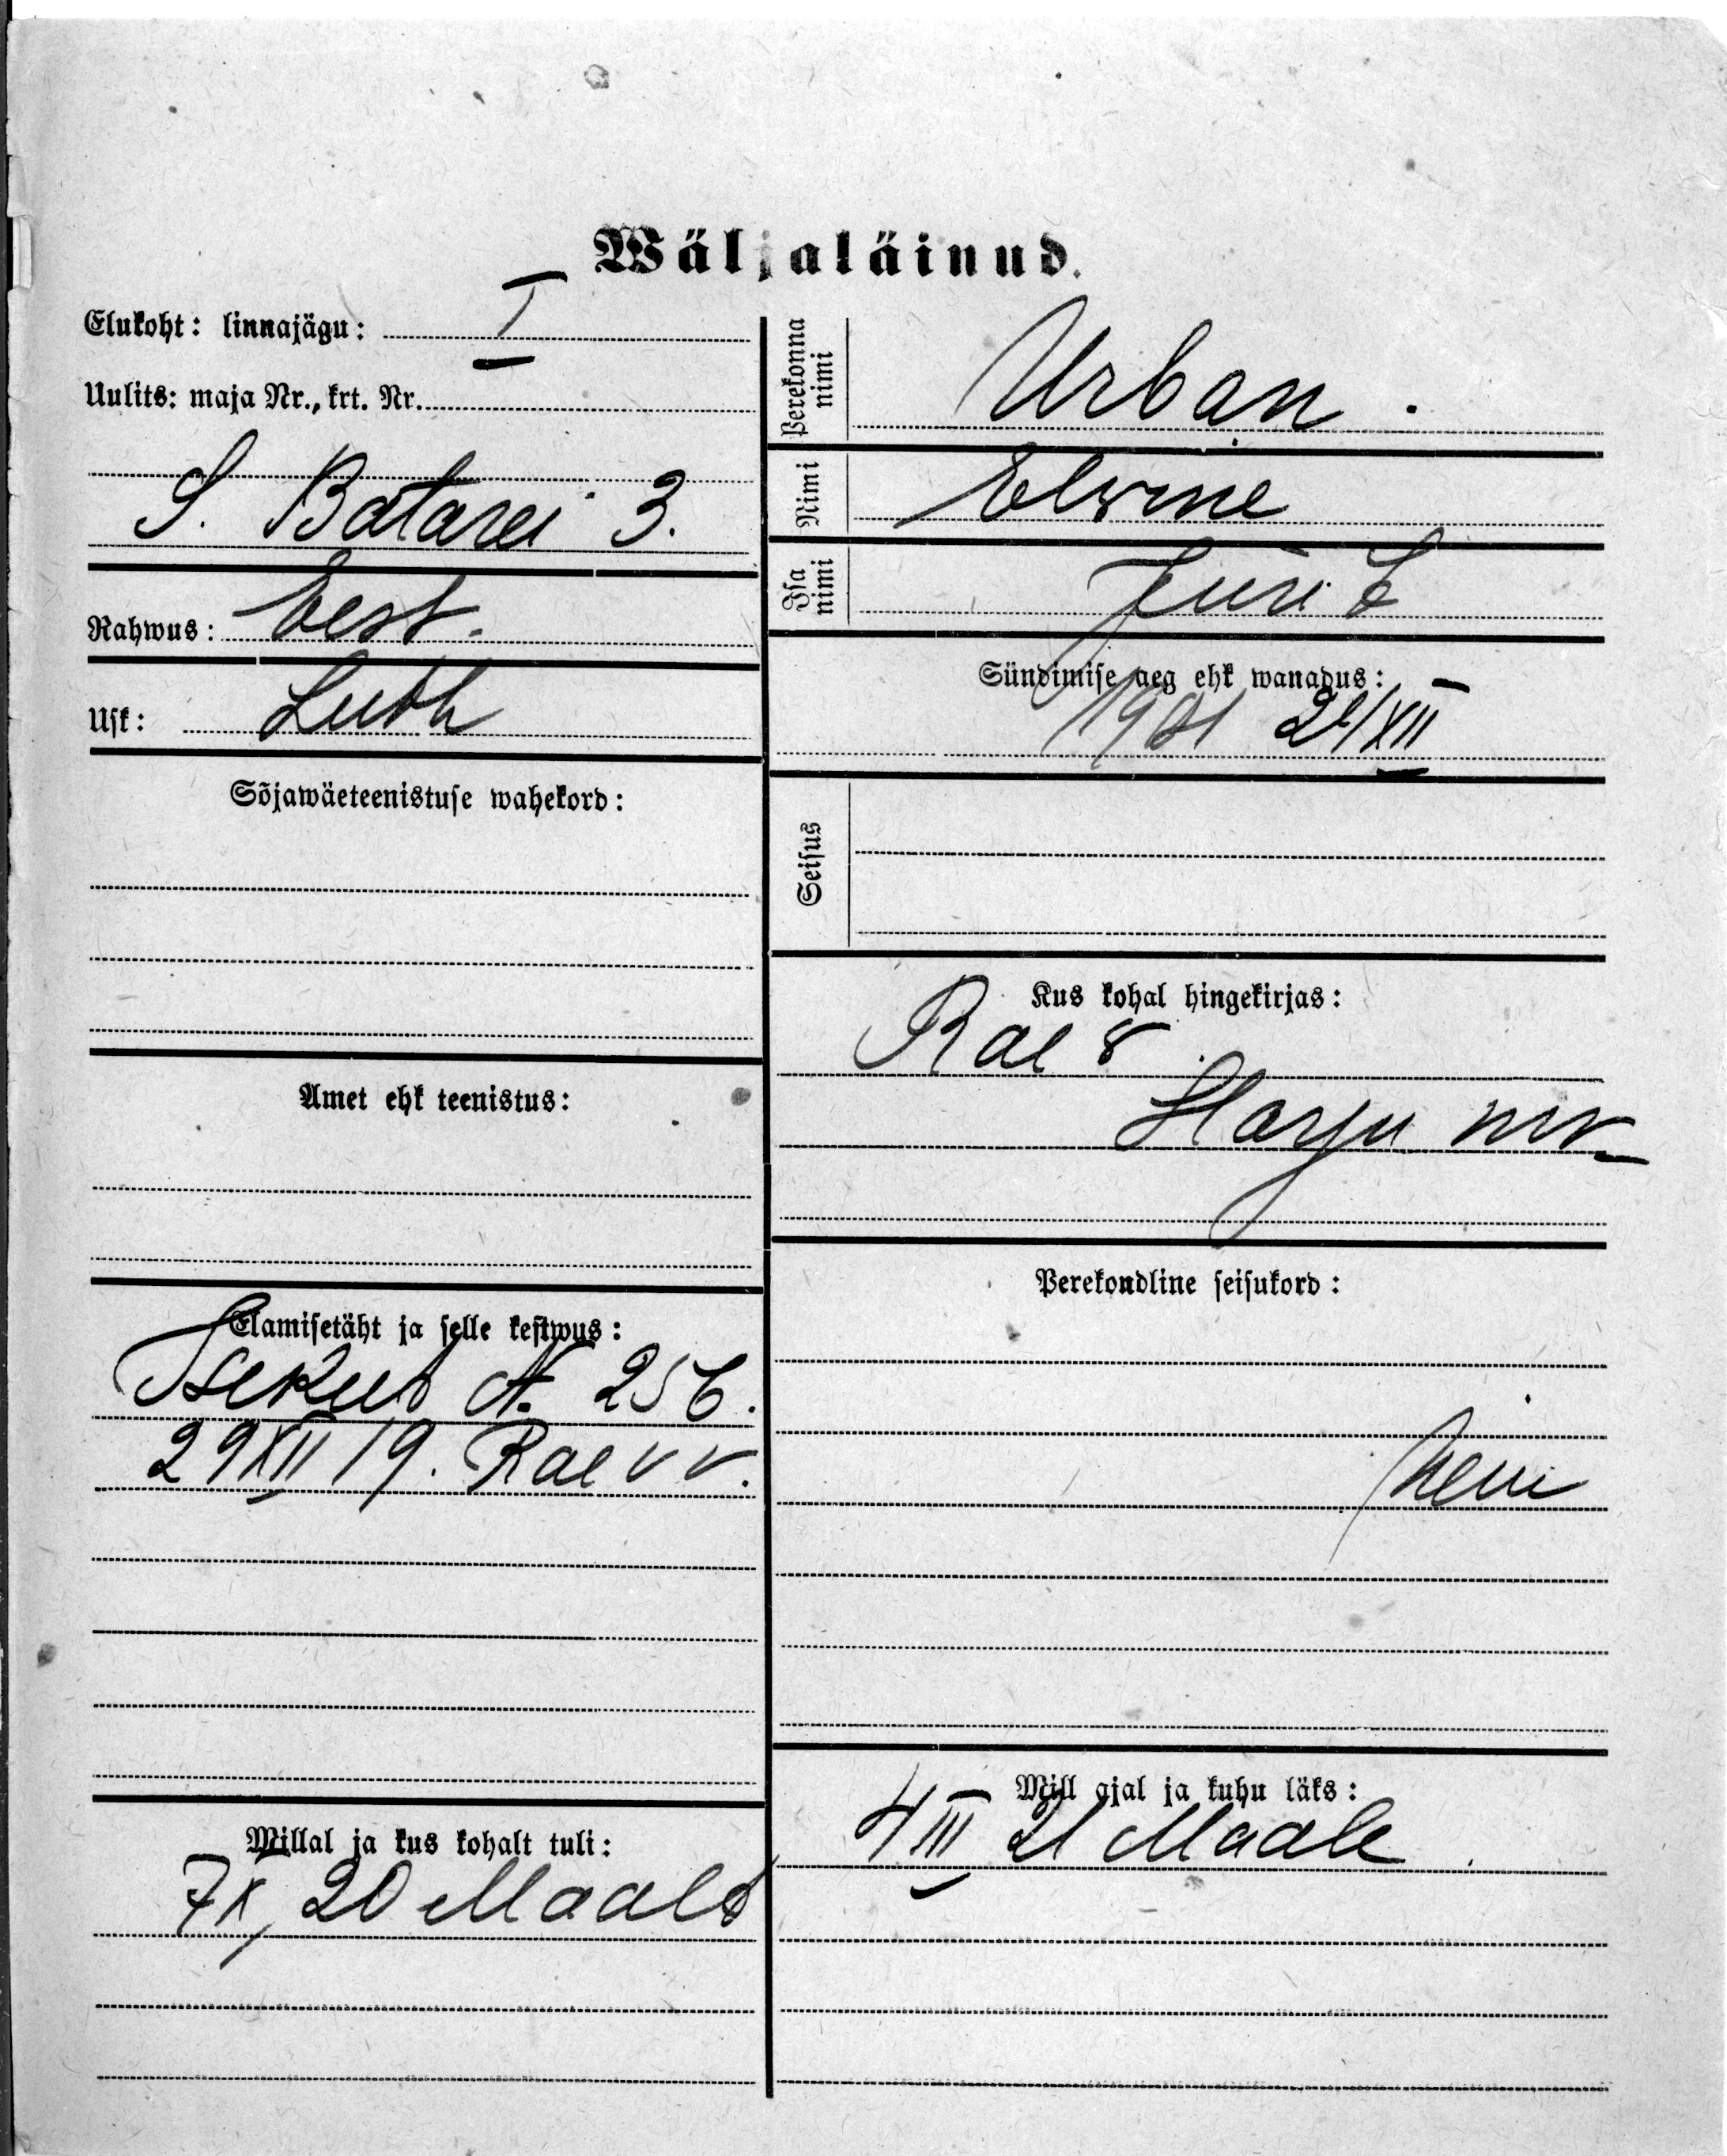 Wäljaläinud.
Elukoht: linnajägu: I
Uulits: maja Nr., krt. Nr.
S. Batarei 3.
Rahwus: Eest.
Usk: Luth
Sõjawäeteenistuse wahekord:
Amet ehk teenistus:
Elamisetäht ja selle kestwus:
Isikut A. 256.
29 XII 19. Rae v v.
Millal ja kus kohalt tuli:
7 X 20 Maalt
Perekonna nimi Urban.
Nimi Elwine
Isa nimi Jüri t
Sündimise aeg ehk wanadus:
1901 21/XII
Seisus
Kus kohal hingekirjas:
Rae v.
Harju mk
Perekondline seisukord:
neiu
Mill ajal ja kuhu läks:
4 III 21 Maale